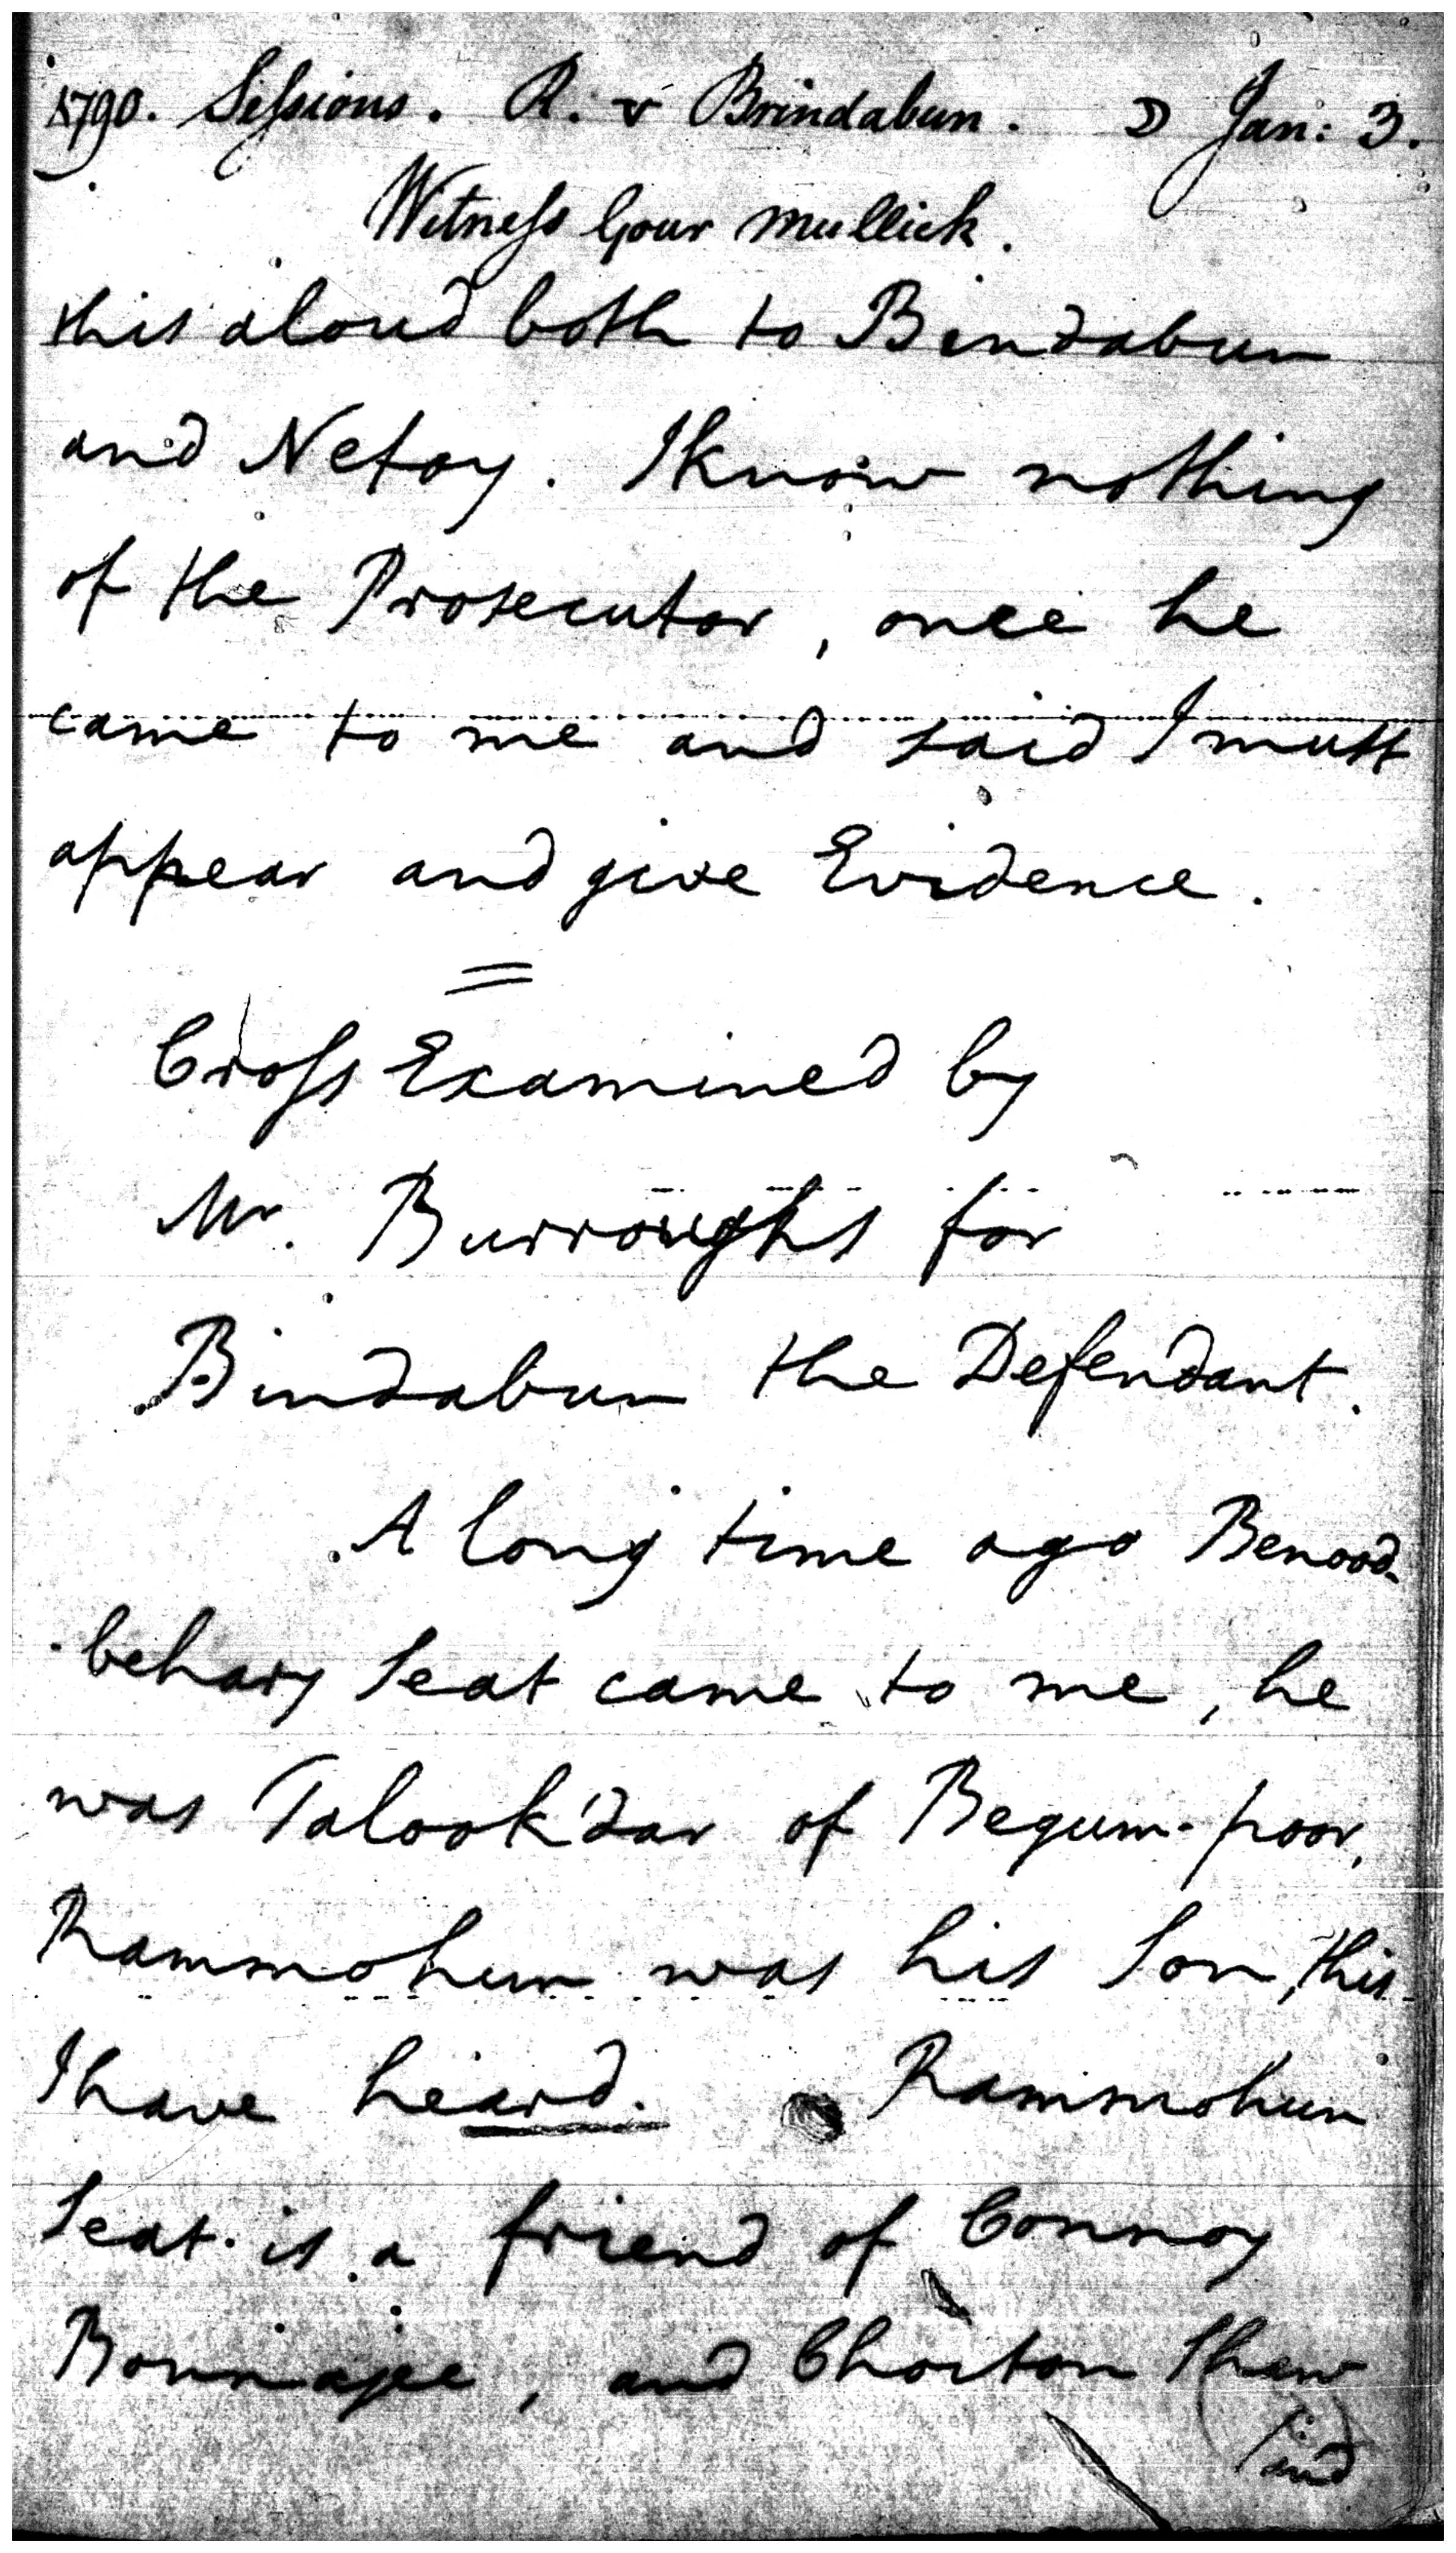 1790. Sessions. R. v Brindabun. ☽ Jan: 3.
Witness Gour Mullick.
this aloud both to Bindabun
and Netoy. I know nothing
of the Prosecutor, once he
came to me and said I must
appear and give Evidence.
=
Cross Examined by
Mr. Burroughs for
Bindabun the Defendant.
A long time ago Benood-
behary Seat came to me, he
was Talook'dar of Begum-poor,
Rammohun was his Son, this
I have heard. Rammohun
Seat is a friend of Connoy
Bonnajee, and Choiton Shaw
and